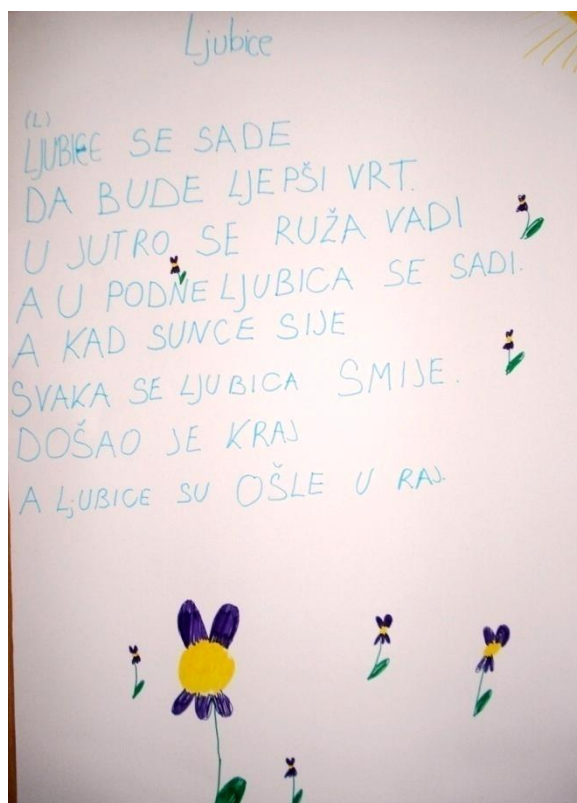 Ljubice
(L)
LJUBICE SE SADE
DA BUDE LJEPŠI VRT.
U JUTRO SE RUŽA VADI
A U PODNE LJUBICA SE SADI.
A KAD SUNCE SIJE
SVAKA SE LJUBICA SMIJE.
DOŠAO JE KRAJ
A LJUBICE SU OŠLE U RAJ.